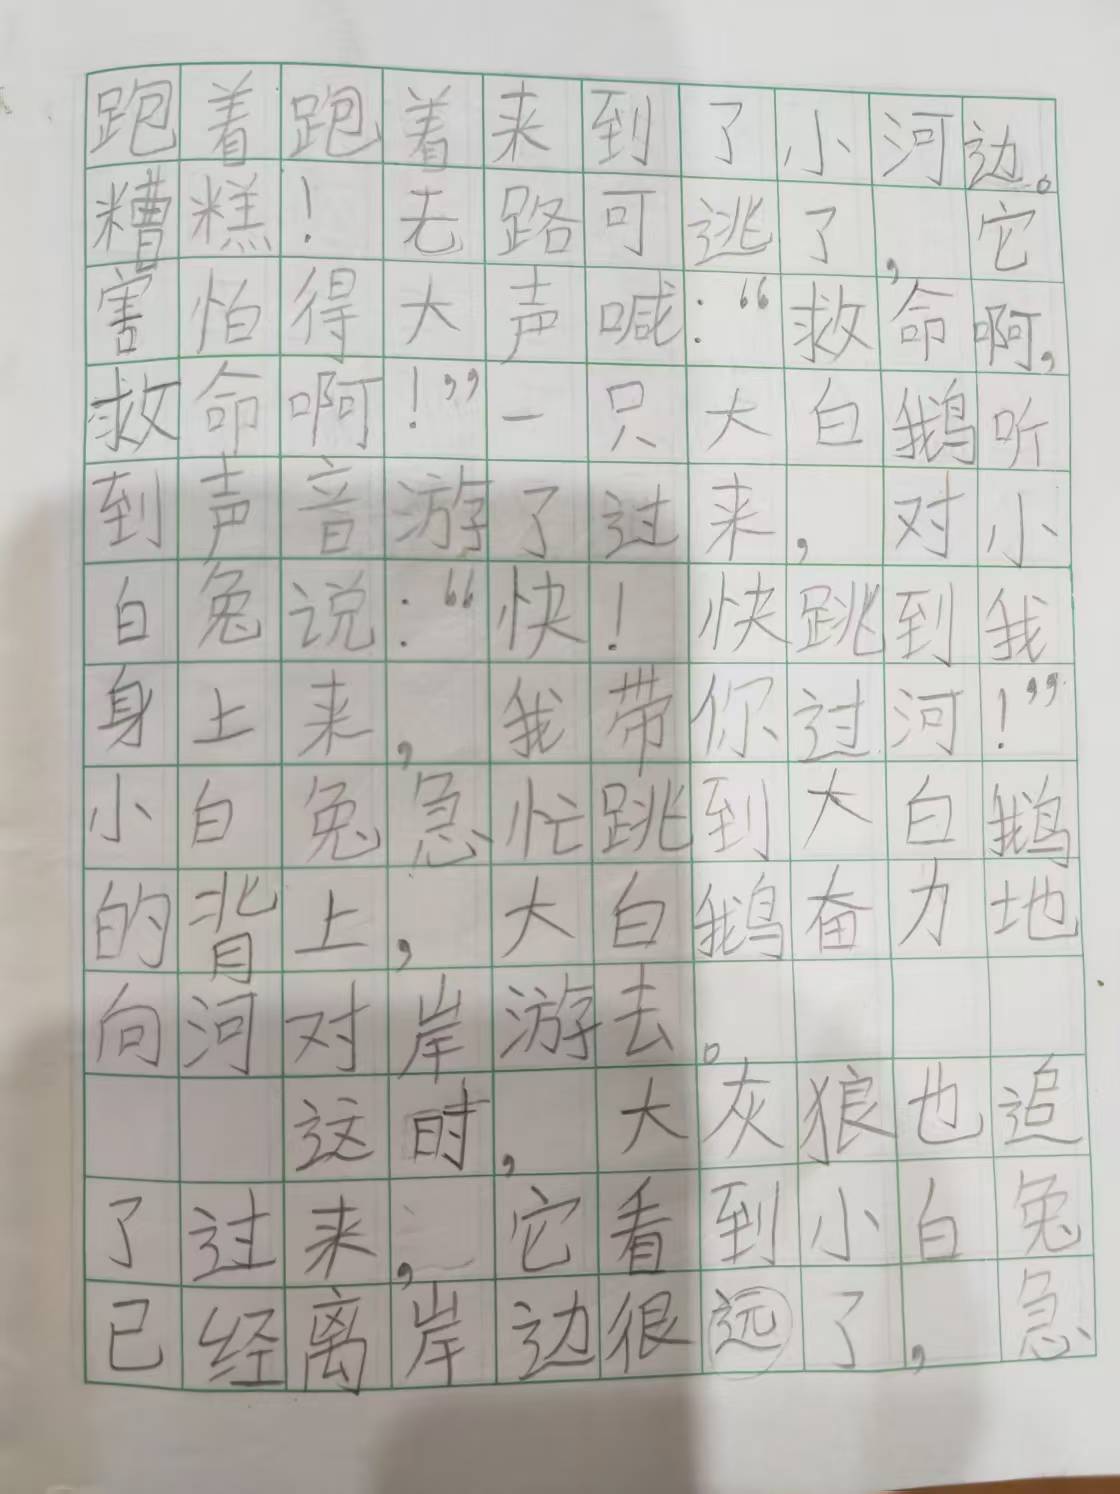 跑着跑着来到了小河边。
糟糕！无路可逃了，它
害怕得大声喊：“救命啊，
救命啊！”一只大白鹅听
到声音游了过来，对小
白兔说：“快！快跳到我
身上来，我带你过河！”
小白兔急忙跳到大白鹅
的背上，大白鹅奋力地
向河对岸游去。
这时，大灰狼也追
了过来，它看到小白兔
已经离岸边很远了，急